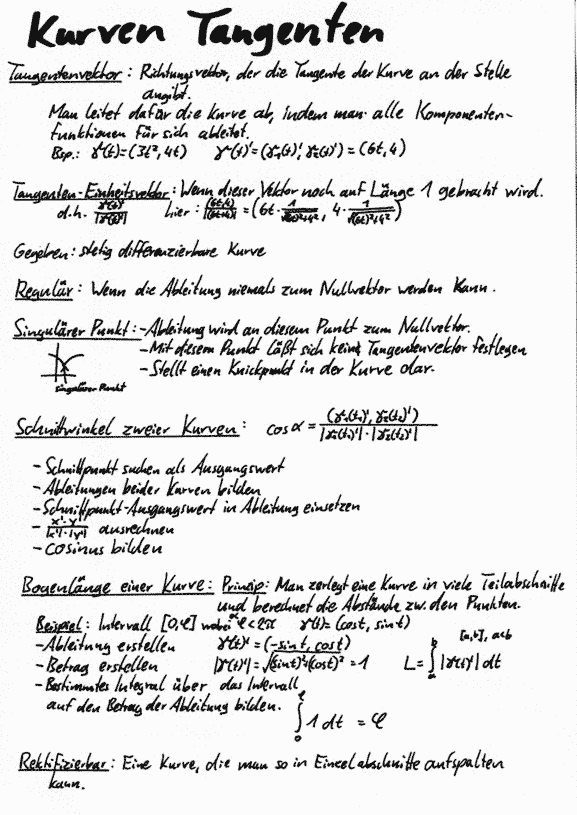 Kurven Tangenten
Tangentenvektor: Richtungsvektor, der die Tangente der Kurve an der Stelle
angibt.
Man leitet dafür die Kurve ab, indem man alle Komponenten-
funktionen für sich ableitet.
Bsp.: γ(t)=(3t², 4t) γ(t)'=(γ₁(t)', γ₂(t)')=(6t,4)
Tangenten-Einheitsvektor: Wenn dieser Vektor noch auf Länge 1 gebracht wird.
d.h. γ(t)'/|γ(t)'| hier: (6t,4)/|(6t,4)| = (6t·1/√((6t)²+4²), 4·1/√((6t)²+4²))
Gegeben: stetig differenzierbare Kurve
Regulär: Wenn die Ableitung niemals zum Nullvektor werden kann.
Singulärer Punkt: -Ableitung wird an diesem Punkt zum Nullvektor.
-Mit diesem Punkt läßt sich kein Tangentenvektor festlegen
-Stellt einen Knickpunkt in der Kurve dar.
singulärer Punkt
Schnittwinkel zweier Kurven: cos α = (γ₁(t₁)', γ₂(t₂)')/|γ₁(t₁)'|·|γ₂(t₂)'|
-Schnittpunkt suchen als Ausgangswert
-Ableitungen beider Kurven bilden
-Schnittpunkt-Ausgangswert in Ableitung einsetzen
-x'·y'/|x'|·|y'| ausrechnen
-cosinus bilden
Bogenlänge einer Kurve: Prinzip: Man zerlegt eine Kurve in viele Teilabschnitte
und berechnet die Abstände zw. den Punkten.
Beispiel: Intervall [0,φ] wobei φ<2π γ(t)=(cos t, sin t)
-Ableitung erstellen γ(t)'=(-sin t, cos t)
-Betrag erstellen |γ(t)'|=√(sin t)²+(cos t)² = 1 L=∫ₐᵇ|γ(t)'|dt [a,b], a<b
-Bestimmtes Integral über das Intervall
auf den Betrag der Ableitung bilden. ∫₀^φ 1 dt = φ
Rektifizierbar: Eine Kurve, die man so in Einzelabschnitte aufspalten
kann.